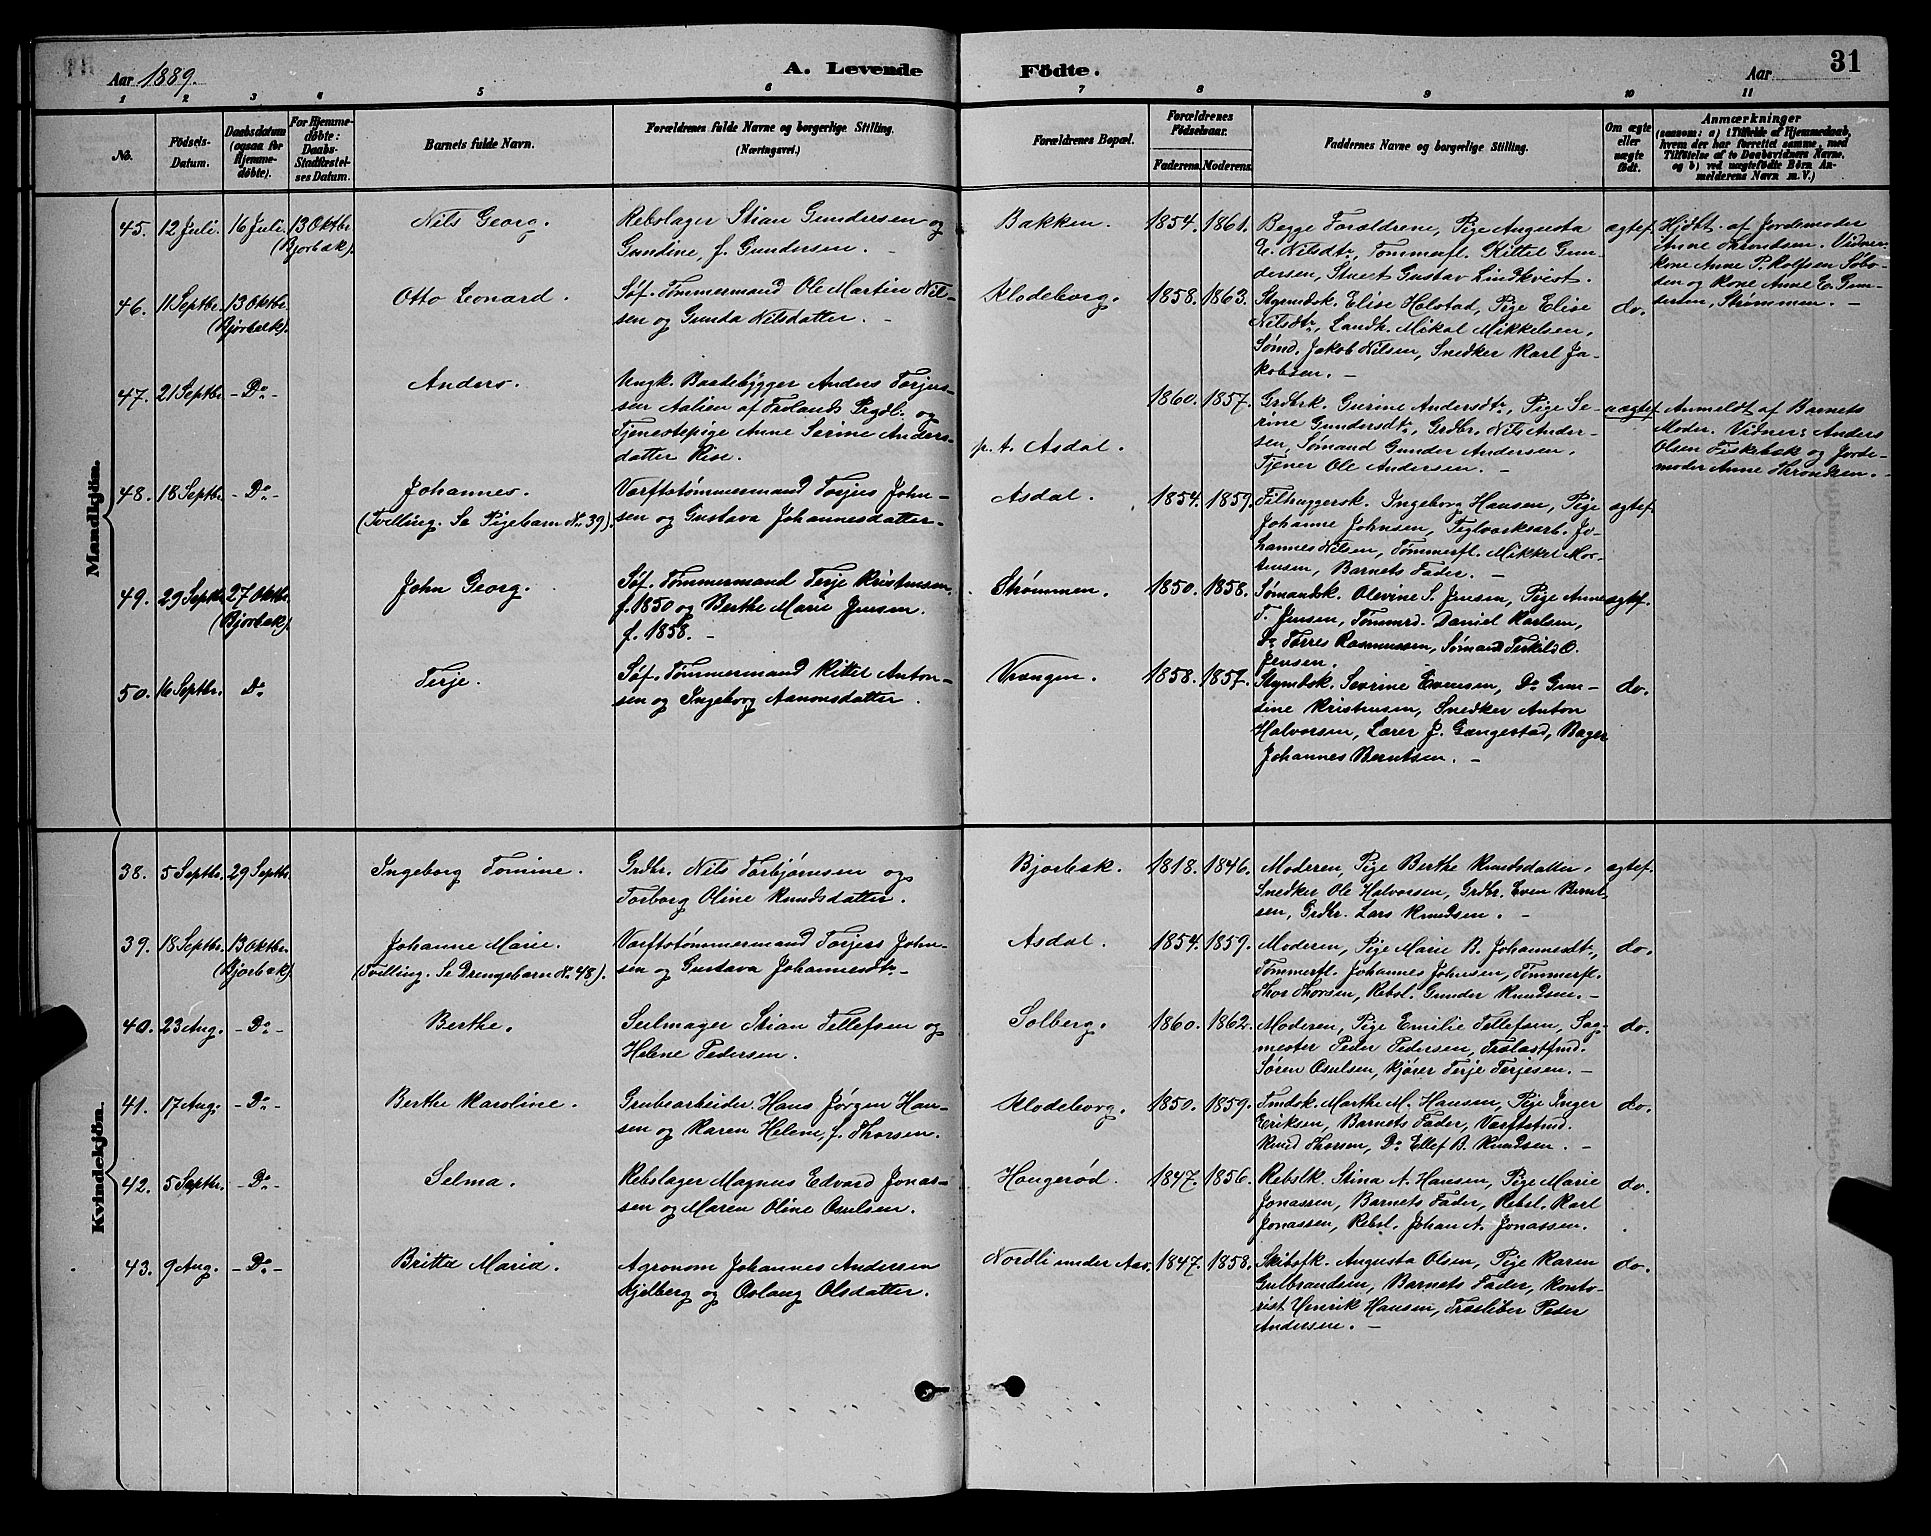 Aar 1889.
A. Levende Födte.
Aar
31
1 2 3 4 5 6 7 8 9 10 11
No.
Födsels-Datum.
Daabsdatum (ogsaa for Hjemme-döbte).
For Hjemme-döbte: Daabs-Stadfæstel-ses Datum.
Barnets fulde Navn.
Forældrenes fulde Navne og borgerlige Stilling.
(Næringsvei.)
Forældrenes Bopæl.
Forældrenes Födselsaar.
Faderens. Moderens.
Faddernes Navne og borgerlige Stilling.
Om ægte eller uægte födt.
Anmærkninger
(saasom: a) i Tilfælde af Hjemmedaab,
hvem der har forrettet samme, med
Tilföielse af to Daabsvidners Navne,
og b) ved uægtefödte Börn An-
melderens Navn m. V.)
Mandkjön.
45. 12 Juli. 16 Juli. 13 Oktbr. (Bjorbæk).
Nils Georg.
Rebslager Stian Gundersen og
Gundine, f. Gundersen. –
Bakken. 1854. 1861.
Begge Forældrene, Pige Augusta
E. Nilsdtr, Tømmerfl. Kittel Gun-
dersen, Stuert Gustav Lindkvist.
ægtef.
Hjdbt. af Jordemoder
Anne Thronsen. Vidner:
Kone Anne P. Rolfsen Søbo-
sen og Kone Anne E. Gun-
dersen, Strømmen. –
46. 11 Septbr. 13 Oktbr. (Bjorbæk).
Otto Leonard.
Søf. Tømmermand Ole Martin Nil-
sen og Gunda Nilsdatter. –
Klodeborg. 1858. 1863.
Styrmdsk. Elise Holstad, Pige Elise
Nilsdtr, Landh. Mikal Mikkelsen,
Sømd. Jakob Nilsen, Snedker Karl Ja-
kobsen. –
do.
47. 21 Septbr. – Do –
Anders.
Ungk. Baadebygger Anders Torjus-
sen Aalien af Frolands Pgdl. og
Tjenestepige Anne Serine Anders-
datter Rise.
p. t. Asdal. 1860. 1857.
Grdbrk. Gurine Andersdtr, Pige Se-
rine Gundersdtr, Grdbr. Nils Ander-
sen, Sømand Gunder Andersen,
Tjener Ole Andersen. –
uægtef.
Anmeldt af Barnets
Moder. Vidner: Anders
Olsen Fiskebæk og Jorde-
moder Anne Thronsen. –
48. 18 Septbr. – Do –
Johannes.
(Tvilling. Se Pigebarn No 39).
Værftstømmermand Torjus John-
sen og Gustava Johannesdatter –
Asdal. 1854. 1859.
Filhuggersk. Ingeborg Hansen, Pige
Johanne Johnsen, Teglværksarb. Jo-
hannes Nilsen, Tømmerfl. Mikkel Mor-
tensen, Barnets Fader. –
ægtef.
49. 29 Septbr. 27 Oktbr. (Bjorbæk).
John Georg.
Søf. Tømmermand Terje Kristensen
f. 1850 og Berthe Marie Jensen
f. 1858. –
Strømmen. 1850. 1858.
Sømandsk. Olevine S. Jensen, Pige Anne
T. Jensen, Tømmrd. Daniel Karlsen,
Do Torres Rasmussen, Sømand Terkils O.
Jensen.
ægtef.
50. 16 Septbr. Do
Terje.
Søf. Tømmermand Kittel Anton-
sen og Ingeborg Aanonsdatter.
Vrængen. 1858. 1857.
Styrmdsk. Sevrine Evensen, Do Gun-
dine Kristensen, Snedker Anton
Halvorsen, Lærer J. Gangestad, Bager
Johannes Berntsen. –
do.
Kvindekjön.
38. 5 Septbr. 29 Septbr.
Ingeborg Tomine.
Grdbr. Nils Torbjørnsen og
Torborg Oline Knudsdatter.
Bjorbæk. 1818. 1846.
Moderen, Pige Berthe Knudsdatter,
Snedker Ole Halvorsen, Grdbr. Even Bernt-
sen, Grdbr. Lars Knudsen. –
ægtef.
39. 18 Septbr. 13 Oktbr. (Bjorbæk)
Johanne Marie.
(Tvilling. Se Drengebarn No 48).
Værftstømmermand Torjers John-
sen og Gustava Johannesdtr –
Asdal. 1854. 1859.
Moderen, Pige Marie B. Johannesdtr,
Tømmerfl. Johannes Johnsen, Tømmerfl.
Thor Thorsen, Rebsl. Gunder Knudsen. –
do.
40. 23 Aug. – Do –
Berthe.
Seilmager Stian Tellefsen og
Helene Pedersen.
Solberg. 1860. 1862.
Moderen, Pige Emilie Tellefsen, Sag-
mester Peder Pedersen, Trælastfmd.
Søren Osulsen, Kjører Terje Terjesen. –
do.
41. 17 Aug. – Do –
Berthe Karoline.
Grubearbeider Hans Jørgen Han-
sen og Karen Helene, f. Thorsen.
Klodeborg. 1850. 1859.
Tmdsk. Marthe M. Hansen, Pige Inger
Eriksen, Barnets Fader, Værftstmd.
Knud Thorsen, Do Ellef B. Knudsen. –
do.
42. 5 Septbr. – Do –
Selma.
Rebslager Magnus Edvard Jonas-
sen og Maren Oline Osulsen.
Haugerød. 1847. 1856.
Rebslk. Stina A. Hansen, Pige Marie
Jonassen, Barnets Fader, Rebsl. Karl
Jonassen, Rebsl. Johan A. Jonassen.
do.
43. 9 Aug. – Do –
Britta Maria.
Agronom Johannes Andersen
Kjelberg og Oslaug Olsdatter.
Nordli under Aas. 1847. 1858.
Skibsfk. Augusta Olsen, Pige Karen
Gulbrandsen, Barnets Fader, Konto-
rist Henrik Hansen, Træsliber Peder
Andersen. –
do.